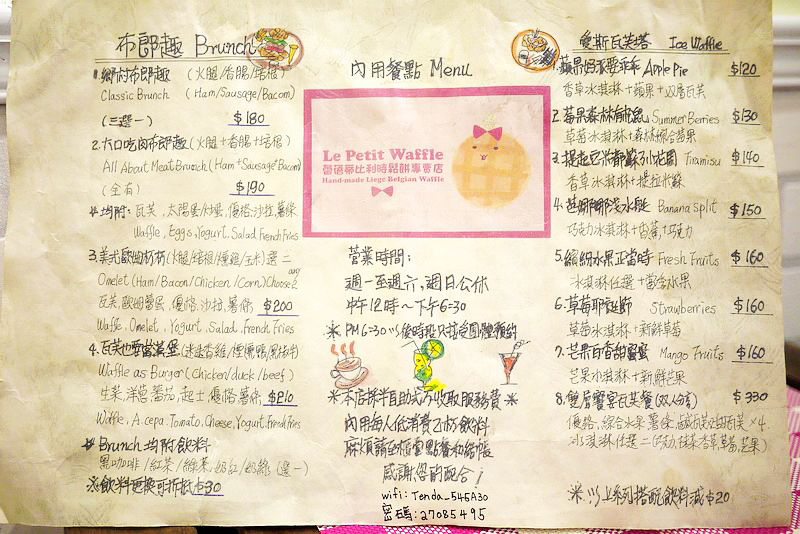 布郎趣 Brunch
1.鄉村布郎趣 (火腿/香腸/培根)
Classic Brunch (Ham/Sausage/Bacon)
(三選一) $180
2.大口吃肉布郎趣(火腿+香腸+培根)
All About Meat Brunch (Ham+Sausage+Bacon)
(全有) $190
*均附:瓦芙,太陽蛋,優格,沙拉,薯條
Waffle, Eggs, Yogurt, Salad, French Fries
3.美式歐姆 (火腿/培根/燻雞/玉米)選二
Omelet (Ham/Bacon/Chicken/Corn) Choose any 2
瓦芙,歐姆蛋,優格,沙拉,薯條 $200
Waffle, Omelet, Yogurt, Salad, French Fries
4.瓦芙也要當漢堡
Waffle as Burger (Chicken/duck/beef)
生菜,洋蔥,蕃茄,起士,優格,薯條 $210
Waffle, Tomato, Cheese, Yogurt, French Fries
* Brunch 均附飲料
黑咖啡/紅茶/綠茶/奶紅/奶綠 (選一)
※飲料更換可折抵$30
內用餐點 Menu
Le Petit Waffle
蕾蓓蒂比利時鬆餅專賣店
Hand-made Liege Belgian Waffle
營業時間:
週一至週六,週日公休
中午12時~下午6:30
※PM6:30以後時段只接受團體預約
※本店採半自助式不收取服務費※
內用每人低消費
麻煩請至櫃臺點餐和結帳
感謝您的配合!
wifi: Tenda_545A30
密碼:27085495
愛斯瓦芙塔 Ice Waffle
1.蘋果 要乖乖 Apple Pie $120
香草冰淇淋+蘋果+瓦芙
2.莓果森林 Summer Berries $130
草莓冰淇淋+森林綜合莓果
3.提拉米蘇 Tiramisu $140
香草冰淇淋+提拉米蘇
4. Banana Split $150
巧克力冰淇淋+香蕉+巧克力
5.繽紛水果正當時 Fresh Fruits $160
冰淇淋任選+當季水果
6.草莓耶誕節 Strawberries $160
草莓冰淇淋+新鮮草莓
7.芒果百香甜蜜蜜 Mango Fruits $160
芒果冰淇淋+新鮮芒果
8.雙層饗宴瓦芙餐(双人分享) $330
優格,綜合水果,薯條,×4
冰淇淋任選二(巧克力,抹茶,香草,草莓,芒果)
※以上系列搭配飲料減$20